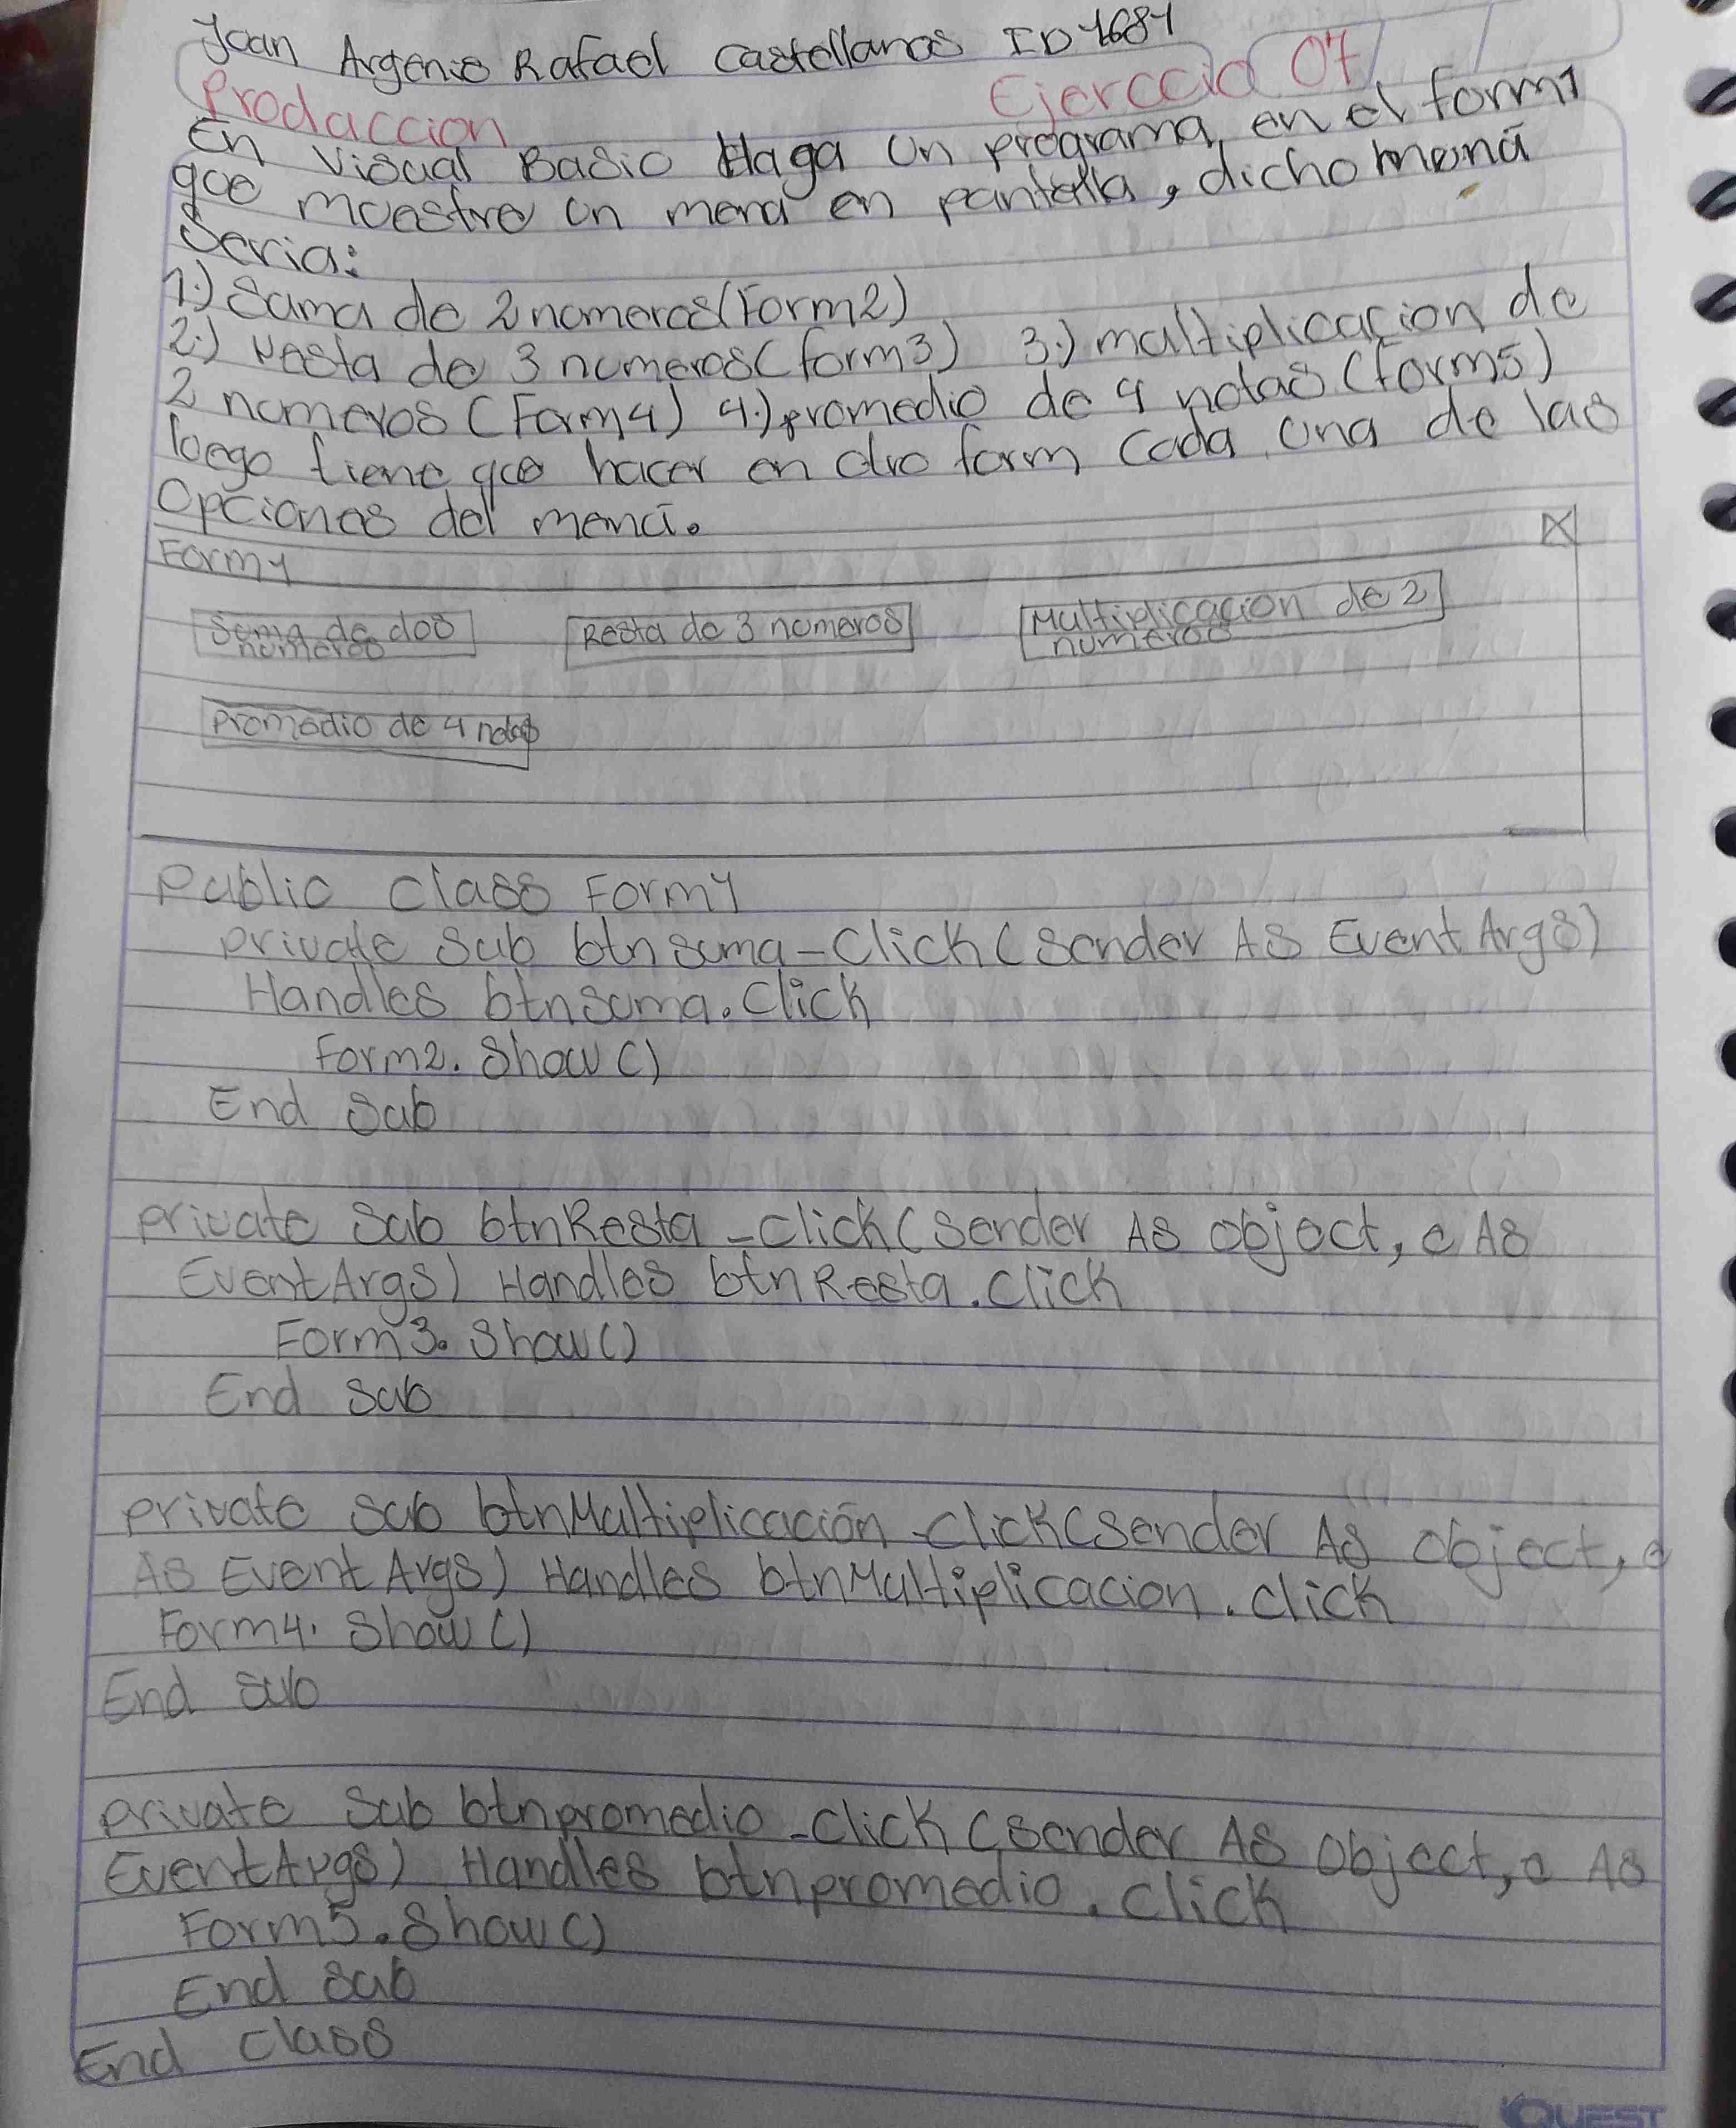 Joan Argenis Rafael Castellanos ID 1681
Producción Ejerccio 07
En Visual Basic Haga un programa, en el form1
que muestre un menú en pantalla, dicho menú
Seria:
1.) Suma de 2 numeros (Form2)
2.) Resta de 3 numeros (form3) 3.) multiplicacion de
2 numeros (Form4) 4.) promedio de 4 notas (form5)
luego tiene que hacer en otro form Cada una de las
Opciones del menú.
Form1 X
Suma de dos numeros Resta de 3 numeros Multiplicacion de 2 numeros
Promedio de 4 notas
Public Class Form1
private Sub btnsuma_Click(Sender AS EventArgs)
Handles btnsuma.Click
Form2.Show()
End Sub
private Sub btnResta_Click(Sender As object, e As
EventArgs) Handles btnResta.Click
Form3.Show()
End Sub
private Sub btnMultiplicación_Click(Sender As Object, e
As EventArgs) Handles btnMultiplicacion.click
Form4.Show()
End Sub
private Sub btnpromedio_Click(Sender As Object, e As
EventArgs) Handles btnpromedio.Click
Form5.Show()
End Sub
End Class
QUEST